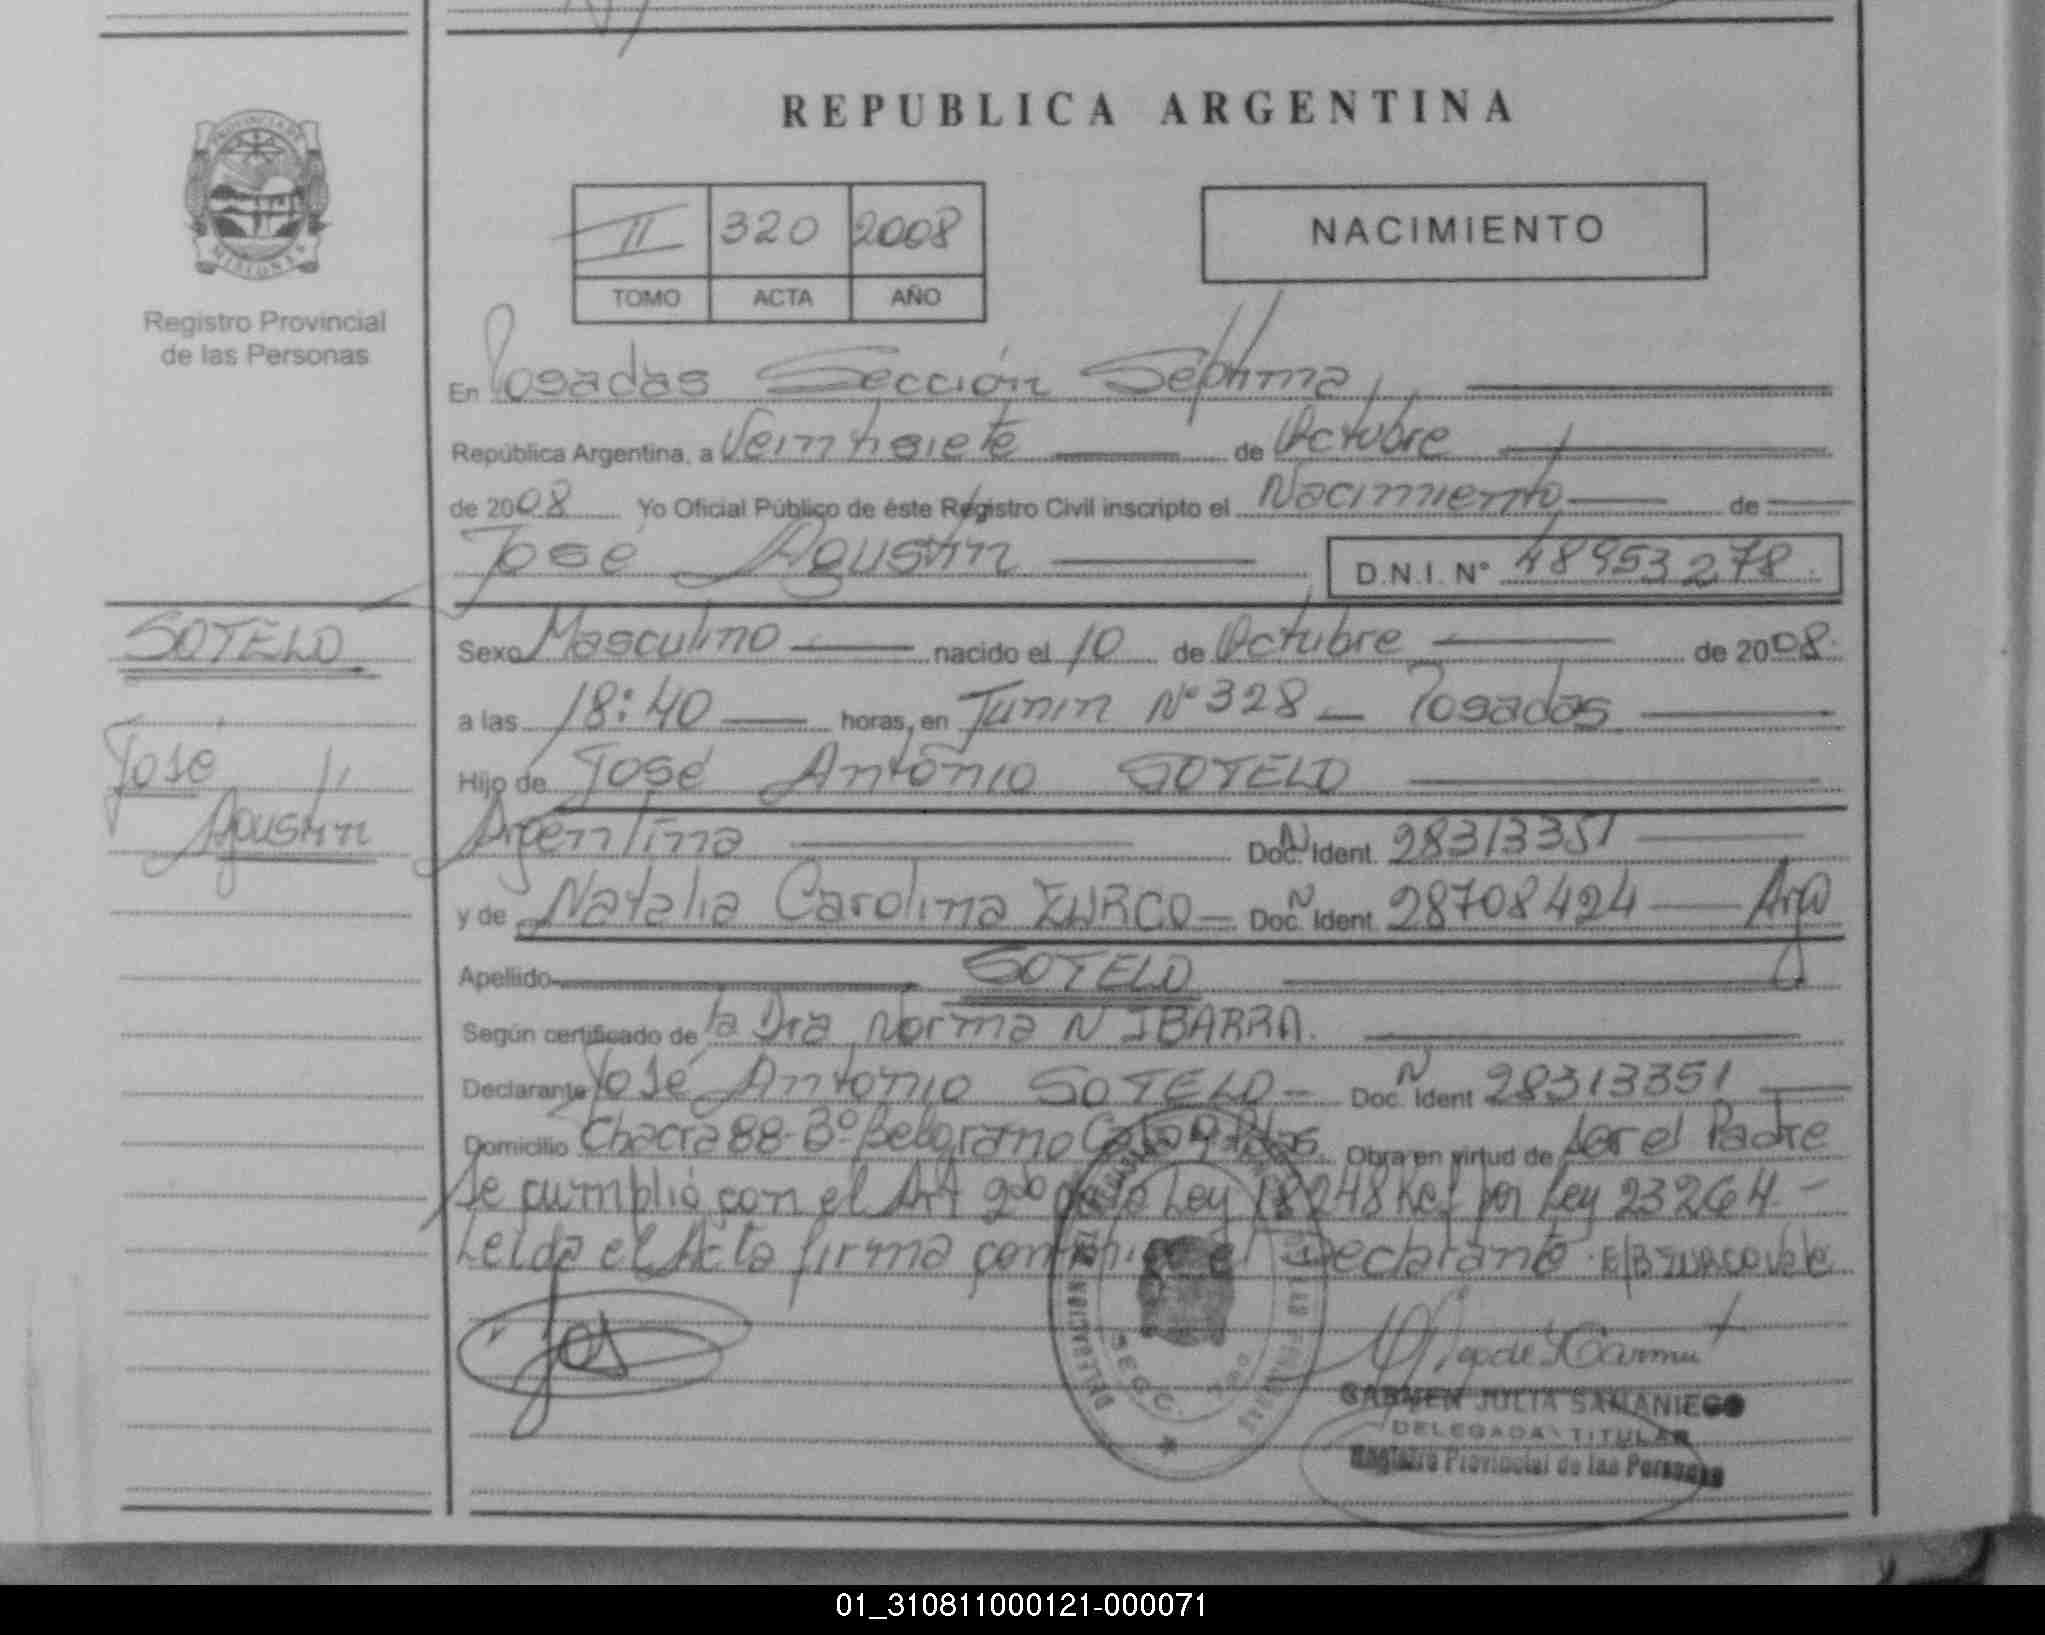 REPUBLICA ARGENTINA
PROVINCIA DE
MISIONES
Registro Provincial
de las Personas
II 320 2008
TOMO ACTA AÑO
NACIMIENTO
En Posadas Sección Séptima
República Argentina, a Veintisiete de Octubre
de 2008 Yo Oficial Público de éste Registro Civil inscripto el Nacimiento de
José Agustín D.N.I. N° 48953278
SOTELO
José
Agustín
Sexo Masculino nacido el 10 de Octubre de 2008.
a las 18:40 horas, en Junin N° 328 - Posadas
Hijo de José Antonio SOTELO
Argentina Doc. Ident. 28313351
y de Natalia Carolina - Doc. Ident. 28708424 Arg
Apellido SOTELO
Según certificado de la Dra Norma N IBARRA.
Declarante José Antonio SOTELO - Doc. Ident 28313351
Domicilio Chacra 88- B° Belgrano Casa Obra en virtud de Ser el Padre
Se cumplió con el Art 2do de la Ley 18248 Ref por Ley 23264.-
Leida el Acta firma conmigo el Declarante.
DELEGACIÓN
SECC. 7
CARMEN JULIA SAMANIEGO
DELEGADA TITULAR
Registro Provincial de las Personas
01_310811000121-000071